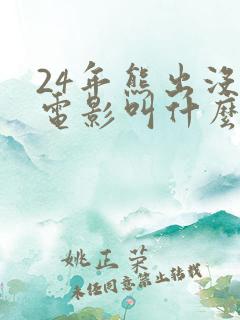 24年熊出沒
電影叫什麼
姚正荣
未经同意禁止转载